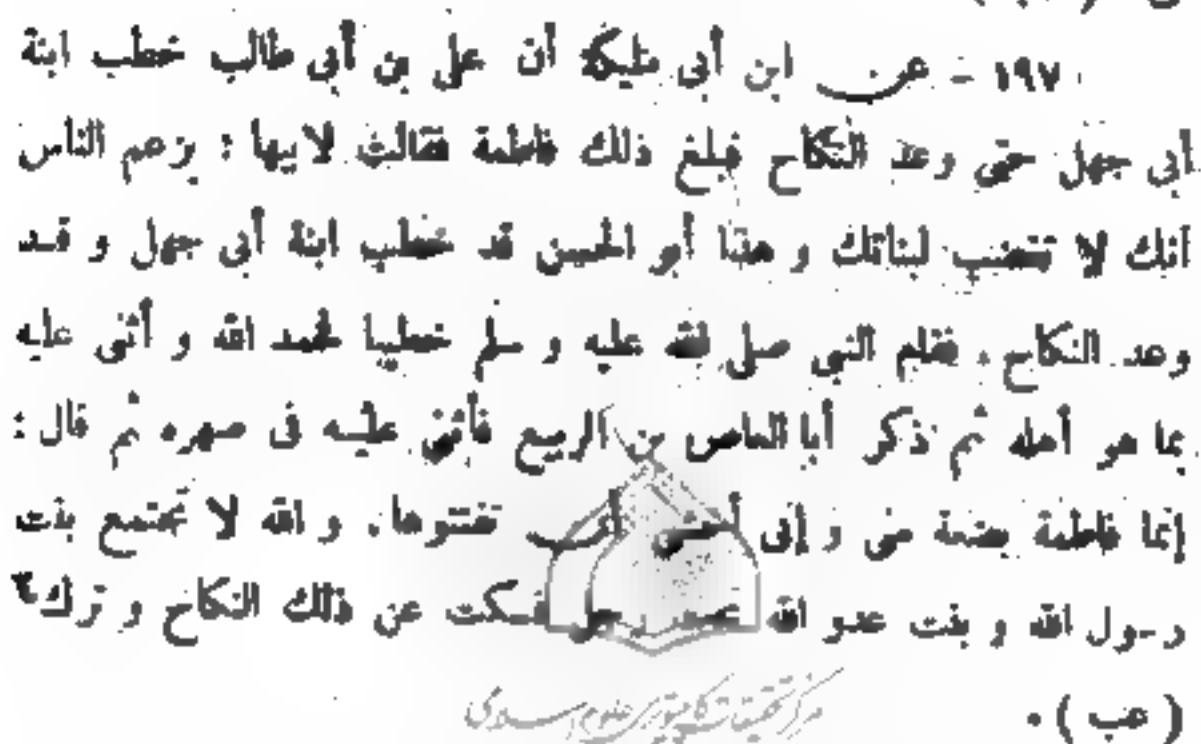 ١٩٧ - عن ابن أبى مليكة أن على بن أبى طالب خطب ابنة
أبى جهل حتى وعد النكاح فبلغ ذلك فاطمة فقالت لابيها : يزعم الناس
أنك لا تغضب لبناتك و هذا أبو الحسن قد خطب ابنة أبى جهل و قد
وعد النكاح . فقام النبى صلى الله عليه و سلم خطيبا فحمد الله و أثنى عليه
بما هو أهله ثم ذكر أبا العاص بن الربيع فأثنى عليه فى صهره ثم قال :
إنما فاطمة بضعة منى و إنى أخشى أن تفتنوها . و الله لا تجتمع بنت
رسول الله و بنت عدو الله فسكت عن ذلك النكاح و ترك
( عب ) .
مركز تحقيقات كامپيوترى علوم اسلامى